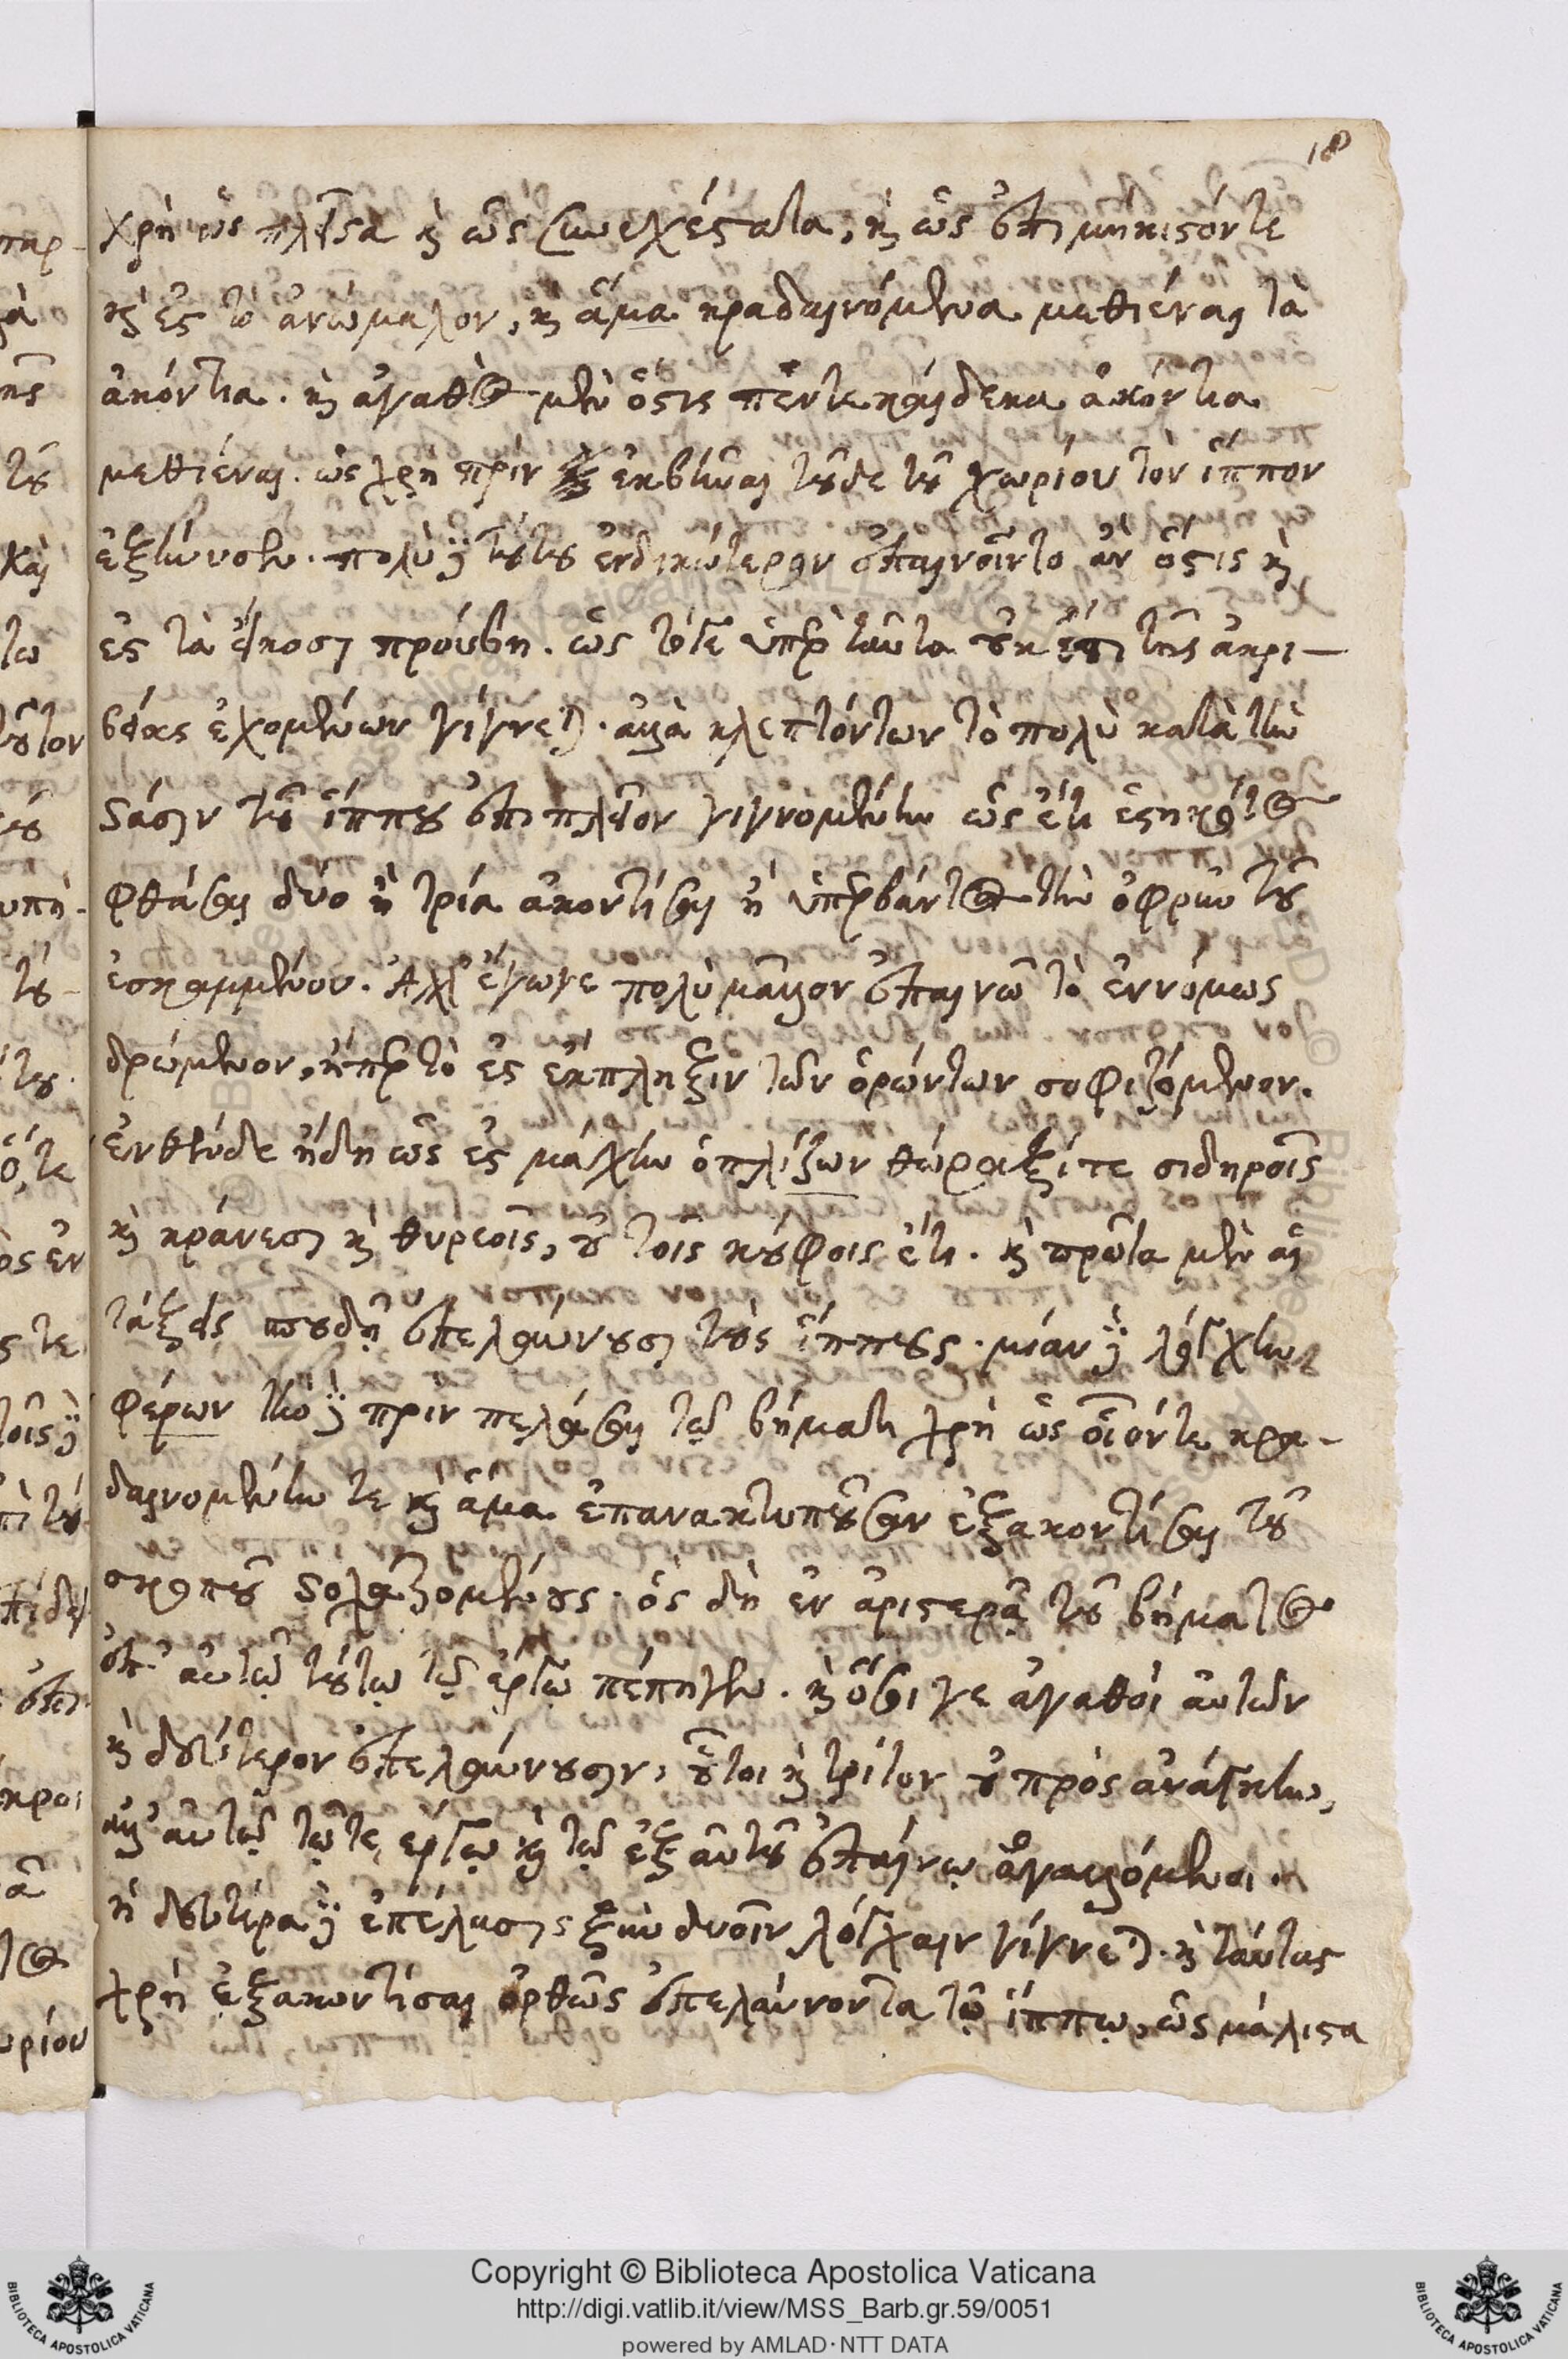 18
χρὴ ὡς πλεῖστα καὶ ὡς συνεχέστατα, καὶ ὡς ἐπιμήκιστόν τε
καὶ ἐς τὸ ἀνώμαλον, καὶ ἅμα κραδαινόμενα μεθιέναι τὰ
ἀκόντια. καὶ ἀγαθὸς μὲν ὅστις πέντε καίδεκα ἀκόντια
μεθιέναι. ὡς χρὴ πρὶν ἐκβῆναι τοῦδε τοῦ χωρίου τὸν ἵππον
ἐξήνυστο. πολὺ δὲ τούτου ἐνδικώτερον ἐπαινοῖντο ἂν ὅστις καὶ
ἐς τὰ εἴκοσι προύβη. ὡς τόγε ὑπὲρ ταῦτα οὐκ ἔτι τῆς ἀκρι-
βείας ἐχομένων γίγνεται. ἀλλὰ κλεπτόντων τὸ πολὺ κατὰ τὴν
στάσιν τοῦ ἵππου ἐπιπλεῖον γιγνομένην ὡς ἔτι ἑστηκότος
φθάσαι δύο ἢ τρία ἀκοντίσαι ἢ ὑπερβάντος τὴν ὀφρὺν τοῦ
ἐσκαμμένου. Ἀλλ' ἔγωγε πολὺ μᾶλλον ἐπαινῶ τὸ ἐννόμως
δρώμενον, ἤπερ τὸ ἐς ἔκπληξιν τῶν ὁρώντων σοφιζόμενον.
ἐνθένδε ἤδη ὡς ἐς μάχην ὁπλίζων θώραξί τε σιδηροῖς
καὶ κράνεσι καὶ θυρεοῖς, οὐ τοῖς κούφοις ἔτι. καὶ πρῶτα μὲν αἱ
τάξεις σπουδῇ ἐπελαύνουσι τοὺς ἵππους. μίαν δὲ λόγχην
φέρων τὴν δὲ πρὶν πελάσαι τῷ βήματι χρὴ ὡς οἷόντε κρα-
δαινομένην τε καὶ ἅμα ἐπανακτυποῦσαν ἐξακοντίσαι τοῦ
σκοποῦ στολαζομένους. ὃς δὴ ἐν ἀριστερᾷ τοῦ βήματος
ἐπ' αὐτῷ τούτῳ τῷ ἔργῳ πέπηγεν. καὶ ὅσοι γε ἀγαθοὶ αὐτῶν
καὶ δεύτερον ἐπελαύνουσιν, οὗτοι καὶ τρίτον οὐ πρὸς ἀνάγκην,
ἀλλ' αὐτῷ τῷ τε ἔργῳ καὶ τῷ ἐξ αὐτοῦ ἐπαίνῳ ἀγαλλόμενοι.
ἡ δευτέρα δὲ ἐπέλασις ξὺν δυοῖν λόγχαιν γίγνεται. καὶ ταύτας
χρὴ ἐξακοντίσαι ὀρθῶς ἐπελαύνοντα τῷ ἵππῳ, ὡς μάλιστα
Copyright © Biblioteca Apostolica Vaticana
http://digi.vatlib.it/view/MSS_Barb.gr.59/0051
powered by AMLAD·NTT DATA